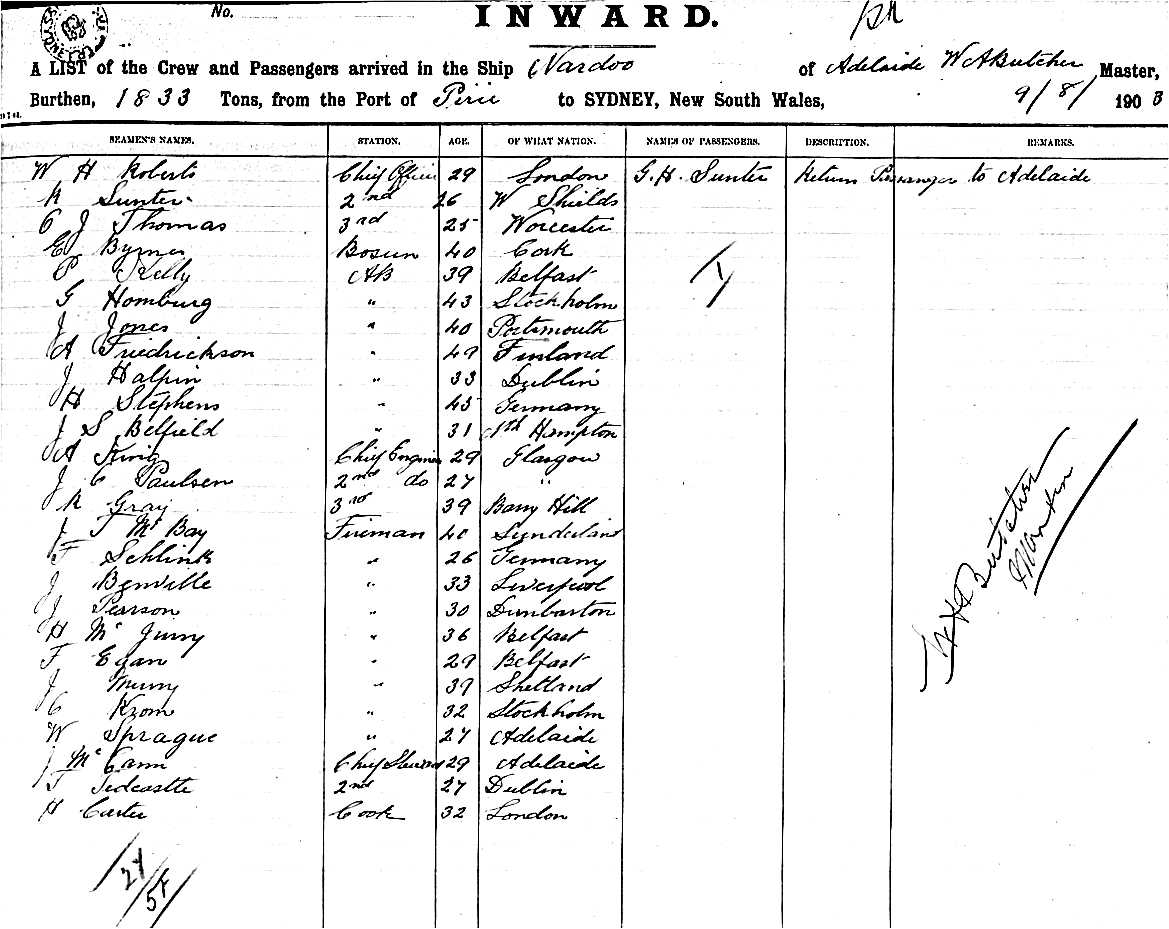 No.
INWARD.
A LIST of the Crew and Passengers arrived in the Ship Nardoo of Adelaide W A Butcher Master,
Burthen, 1833 Tons, from the Port of Pirie to SYDNEY, New South Wales, 9/8/ 1903
SEAMEN'S NAMES. STATION. AGE. OF WHAT NATION. NAMES OF PASSENGERS. DESCRIPTION. REMARKS.
W H Roberts Chief Officer 29 London G. H. Sunter Return Passenger to Adelaide
R Sunter 2nd 26 W Shields
C J Thomas 3rd 25 Worcester
E Byrnes Bosun 40 Cork
P Kelly AB 39 Belfast
G Homburg " 43 Stockholm
J Jones " 40 Portsmouth
A Friedrickson " 49 Finland
J Halpin " 33 Dublin
H Stephens " 45 Germany
J S Belfield " 31 Nth Hampton
A King Chief Engineer 29 Glasgow
J C Paulsen 2nd do 27 "
R Gray 3rd 39 Barry Hill
J T Mc Bay Fireman 40 Sunderland
F Schlink " 26 Germany
J Benville " 33 Liverpool
J Pearson " 30 Dunbarton
H Mc Jurry " 36 Belfast
F Egan " 29 Belfast
J Murry " 39 Shetland
C Krom " 32 Stockholm
W Sprague " 27 Adelaide
J McCann Chief Steward 29 Adelaide
T Tedcastle 2nd 27 Dublin
H Carter Cook 32 London
1
W A Butcher
Master